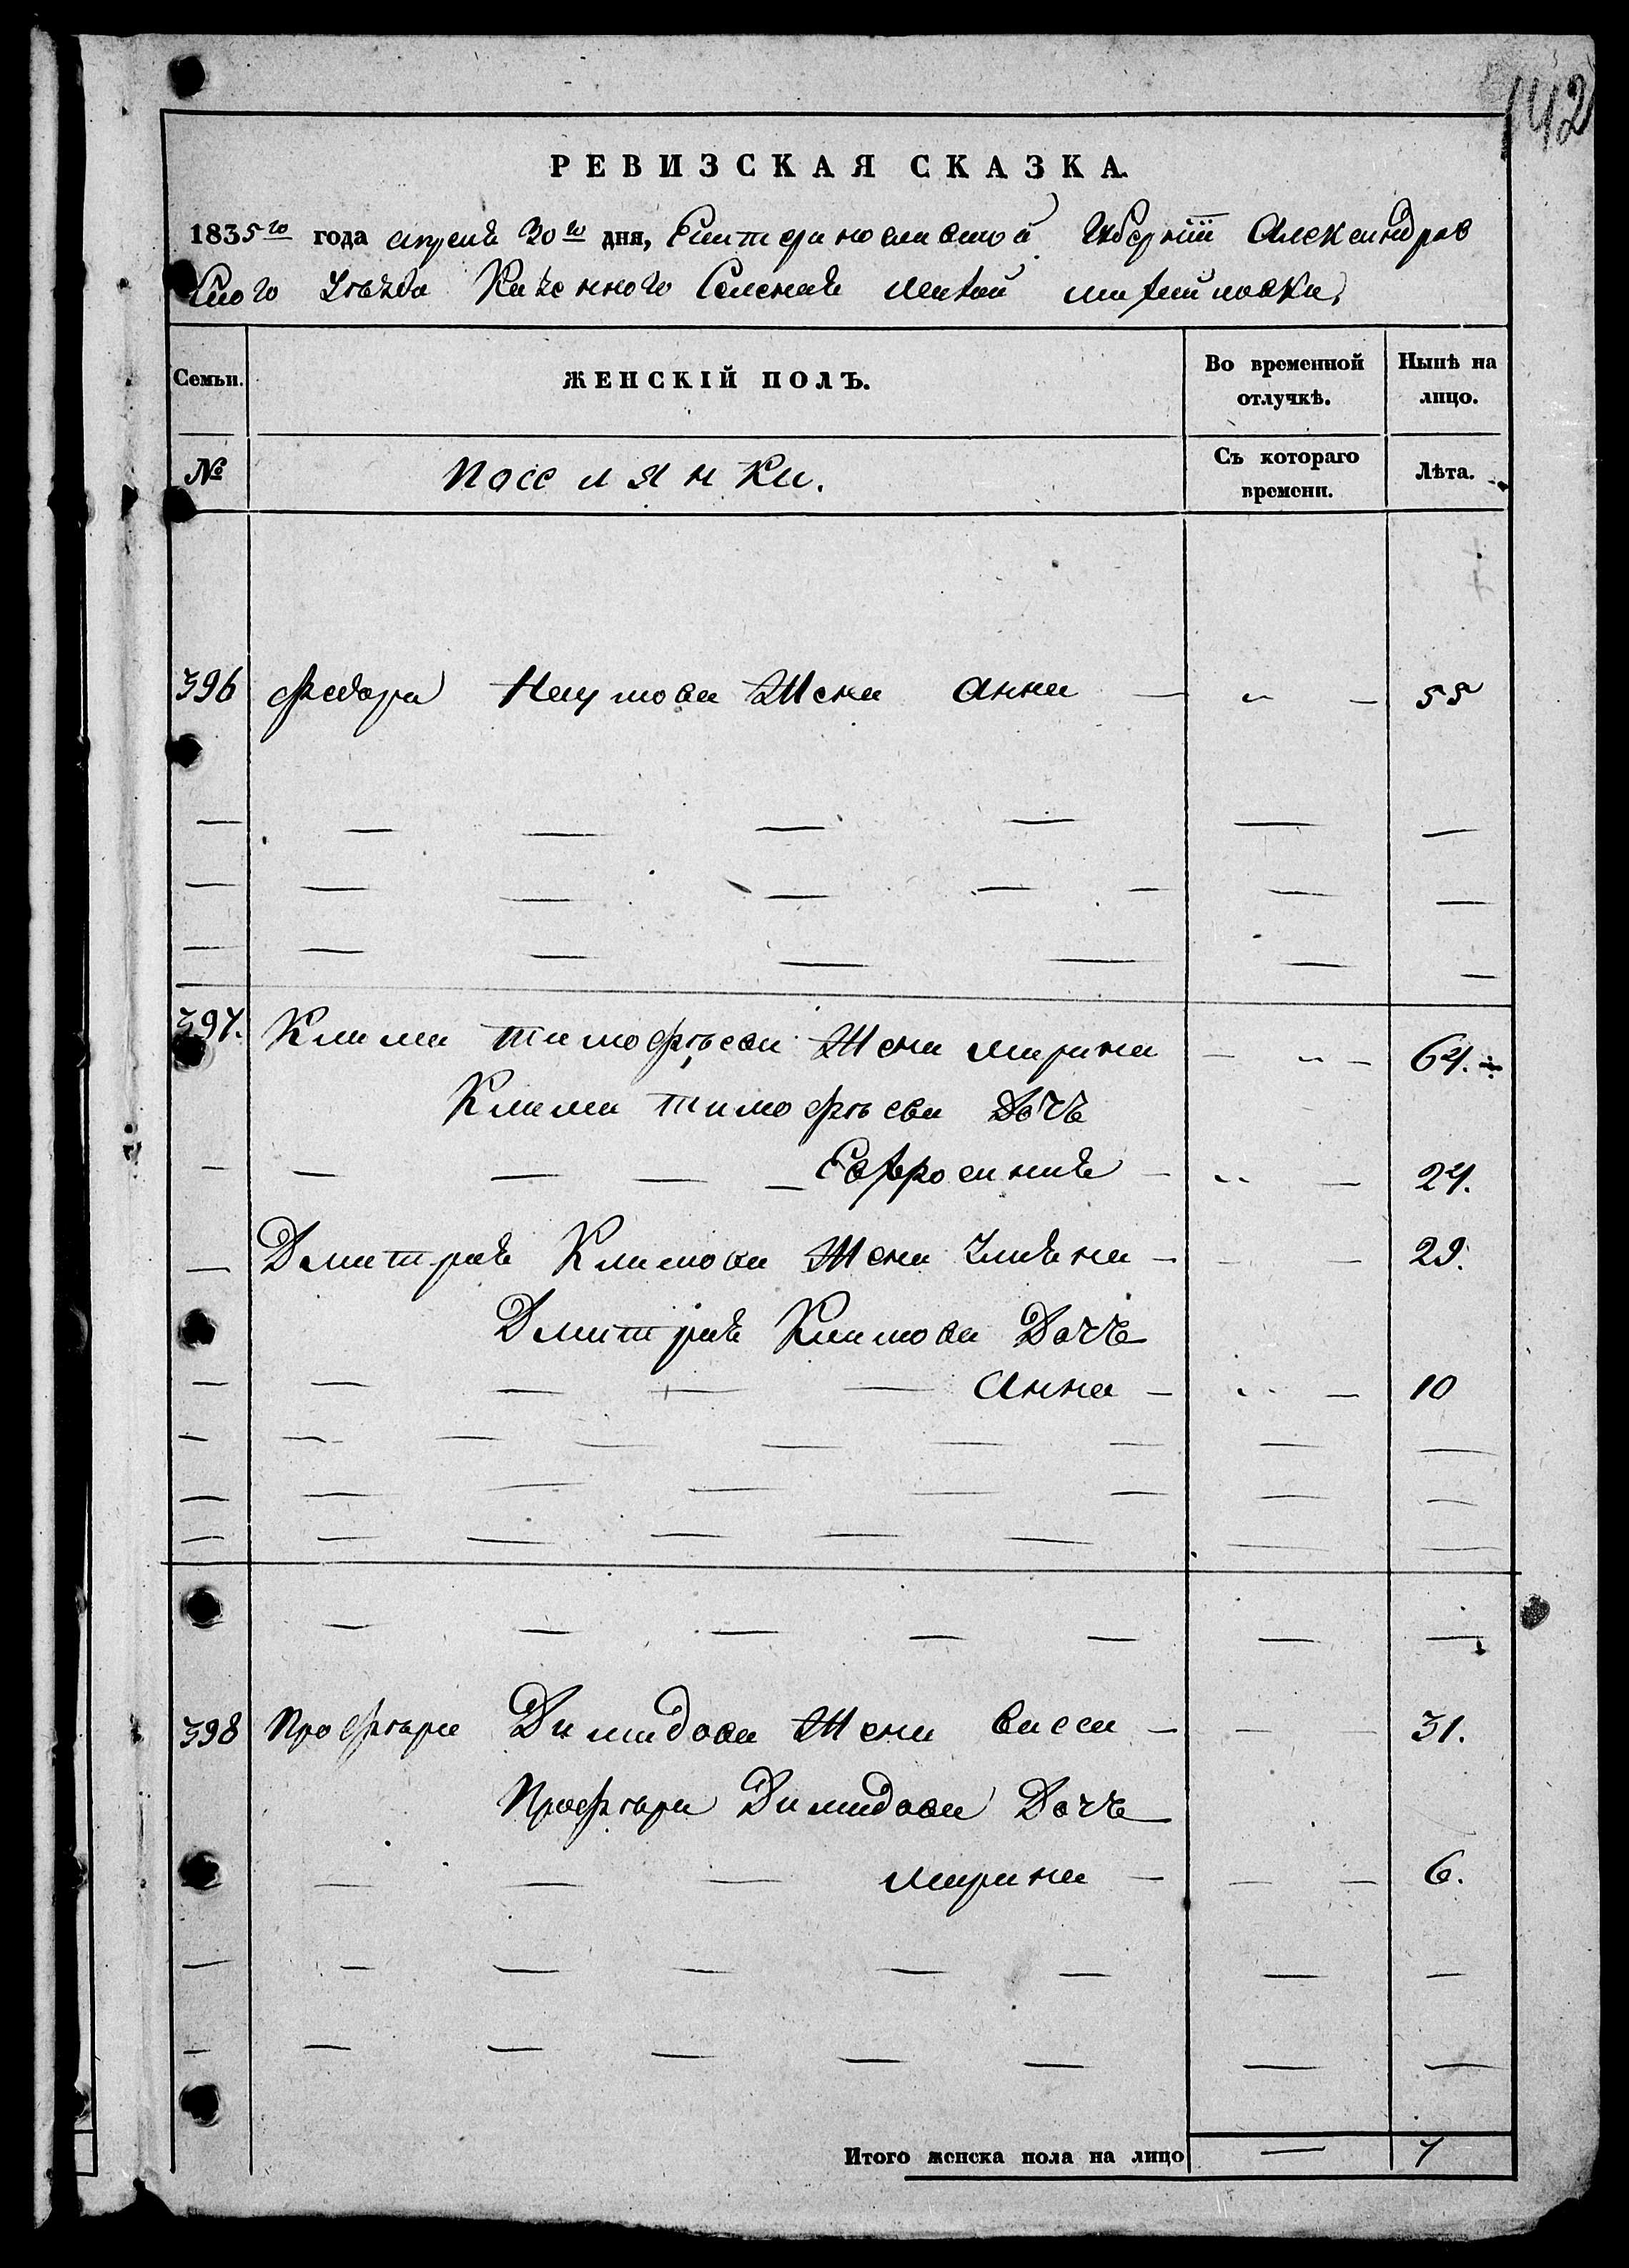 142
РЕВИЗСКАЯ СКАЗКА.
1835го года апреля 30го дня, Екатеринославской Губернiи Александров
ского Уѣзда Казенного Селения Малой михайловки,
Семьи.
ЖЕНСКІЙ ПОЛЪ.
Во временной отлучкѣ.
Нынѣ на лицо.
№
Поселянки.
Съ котораго времени.
Лѣта.
396 Федора Наумова Жена Анна 55
397. Клима Тимофѣева Жена марина 64.
Клима тимофѣева Дочь
Евфросиния 24.
Дмитрия Климова Жена 29.
Дмитрия Климова Дочь
Анна 10
398 Прокофия Димидова Жена Васса 31.
Димидова Дочь
марина 6.
Итого женска пола на лицо — 7